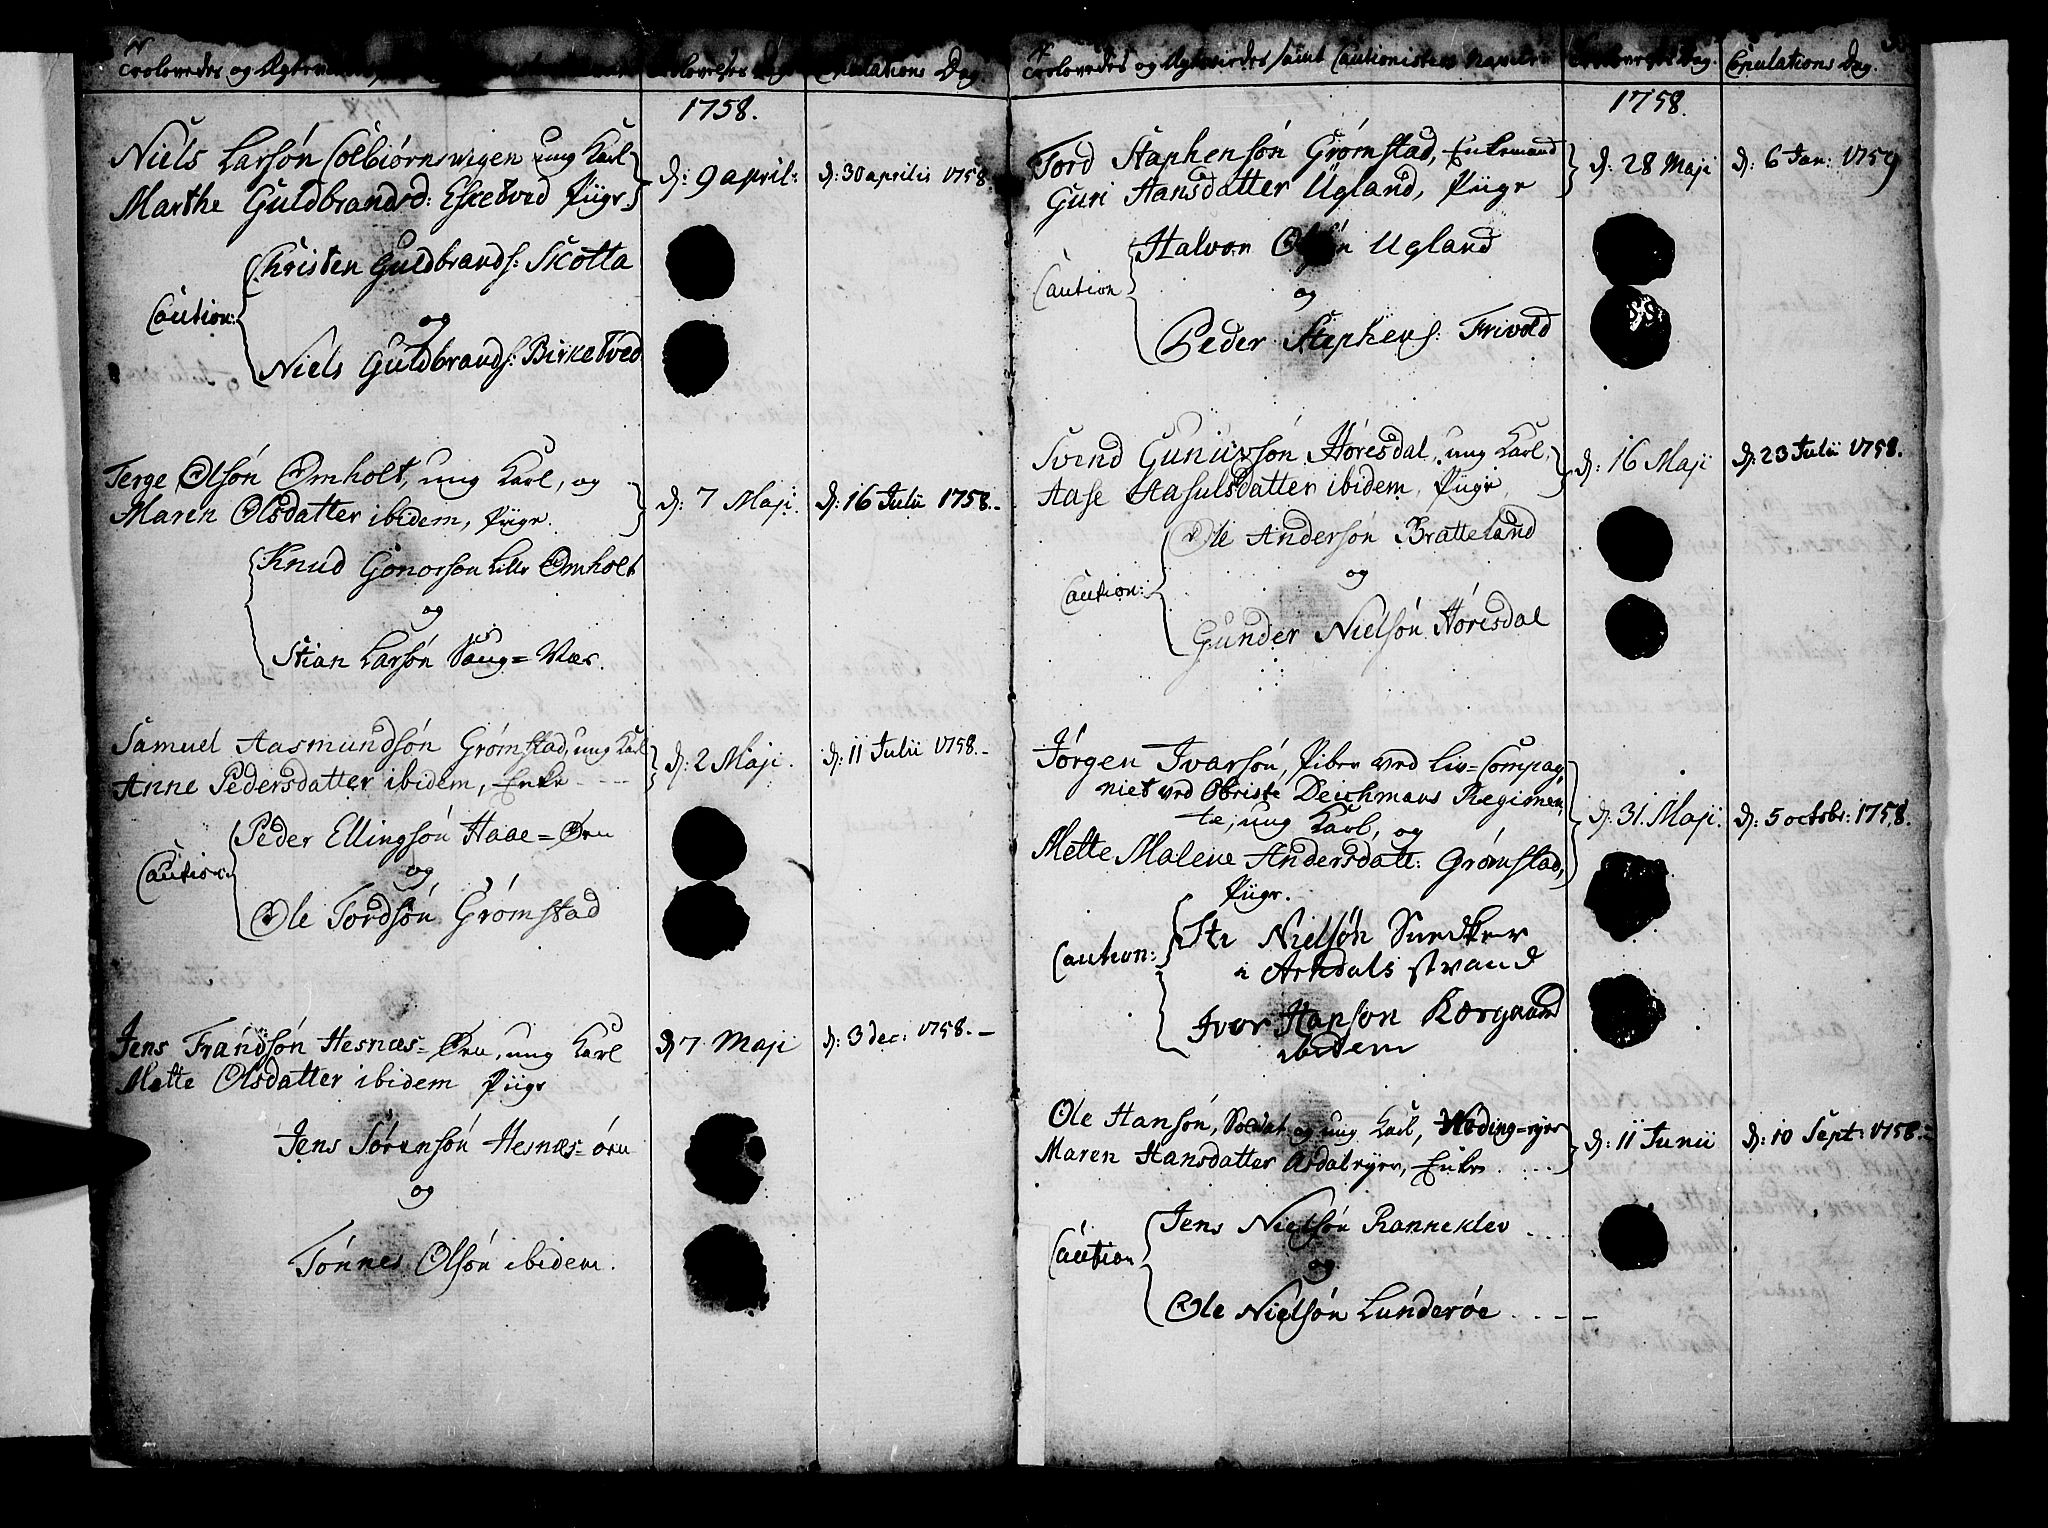 Trolovedes og Ægtevie
Trolovelses Dag
Copulations Dag.
1758.
Niels Larsøn Colbiørnswigen ung Karl
Marthe Guldbrandsd: Esketved Piige
d: 9 april:
d: 30 aprilis 1758
Christen Guldbrands: Skotta
Caution:
og
Niels Guldbrands: Birketved
Terge Olsøn Omholt, ung Karl, og
Maren Olsdatter ibidem, Piige.
d: 7 Maji.
d: 16 Julii 1758.-
Knud Gonorsøn Lille Omholt
og
Stian Larsøn Saug=Wær.
Samuel Aasmundsøn Grømstad, ung Karl
Anne Pedersdatter ibidem, Enke
d: 2 Maji.
d: 11 Julii 1758.-
Peder Ellingsøn Haae=Øen
Caution:
og
Ole Tordsøn Grømstad
Jens Frandsøn Hesnæs=Øen, ung Karl
Mette Olsdatter ibidem Piige
d 7 Maji
d: 3 dec: 1758.-
Jens Sørensøn Hesnæs=øen
og
Tønnes Olsøn ibidem.
Trolovedes og Ægteviedes samt Cautionisters Navne
Trolovelses Dag.
Copulations Dag.
1758.
Tord Staphensøn Grømstad, Enkemand
Guri Hansdatter Ugland, Piige
d: 28 Maji
d: 6 Jan: 1759
Halvor Olsøn Ugland
Caution
og
Peder Stephens: Frivold
Svend Gunuvsøn Høresdal, ung Karl,
Aase Aasulsdatter ibidem, Piige,
d: 16 Maji
d: 23 Julii 1758.
Ole Andersøn Bratteland
og
Caution:
Gunder Nielsøn Høresdal
Jørgen Ivarsøn, Piber ved Liv=Compag,
niet ved Obriste Deichmans Regimen,
te, ung Karl, og
Mette Malene Andersdatt: Grømstad,
Piige.
d: 31. Maji.
d: 5 octobr: 1758.
Nielsøn Snedker
Caution:
i Arndals strand
Iver Hanson Kærgaard
ibidem
Ole Hansøn, Soldat og ung Karl,
Maren Hansdatter Asdalejer, Enke
d: 11 Junii
d: 10 Sept: 1758.
Jens Nielsøn Ranneklev
Caution
og
Ole Nielsøn Lunderøe